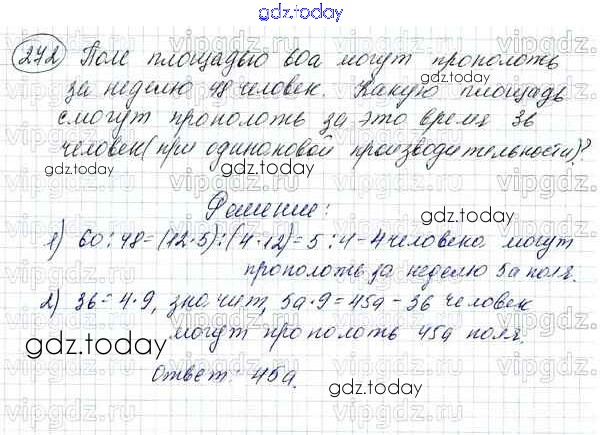 gdz.today
272 Поле площадью 60а могут прополоть
за неделю 48 человек. Какую площадь
gdz.today
смогут прополоть за это время 36
человек (при одинаковой производительности)?
gdz.today
Решение:
1) 60:48=(12·5):(4·12)=5:4-4человека могут
gdz.today
прополоть за неделю 5а поля.
2) 36=4·9, значит, 5а·9=45а-36 человек
могут прополоть 45а поля.
gdz.today
Ответ: 45а.
gdz.today
vipgdz.ru